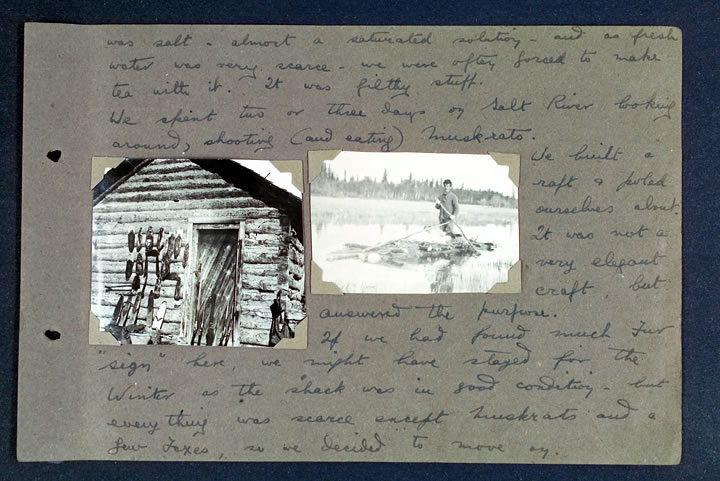 was salt - almost a saturated solution - and as fresh
water was very scarce - we were often forced to make
tea with it. It was filthy stuff.
We spent two or three days on Salt River looking
around, shooting (and eating) Muskrats.
We built a
raft & poled
ourselves about.
It was not a
very elegant
craft, but
answered the purpose.
If we had found much Fur
"sign" here we might have stayed for the
Winter as the shack was in good condition - but
everything was scarce except Muskrats and a
few Foxes, so we decided to move on.